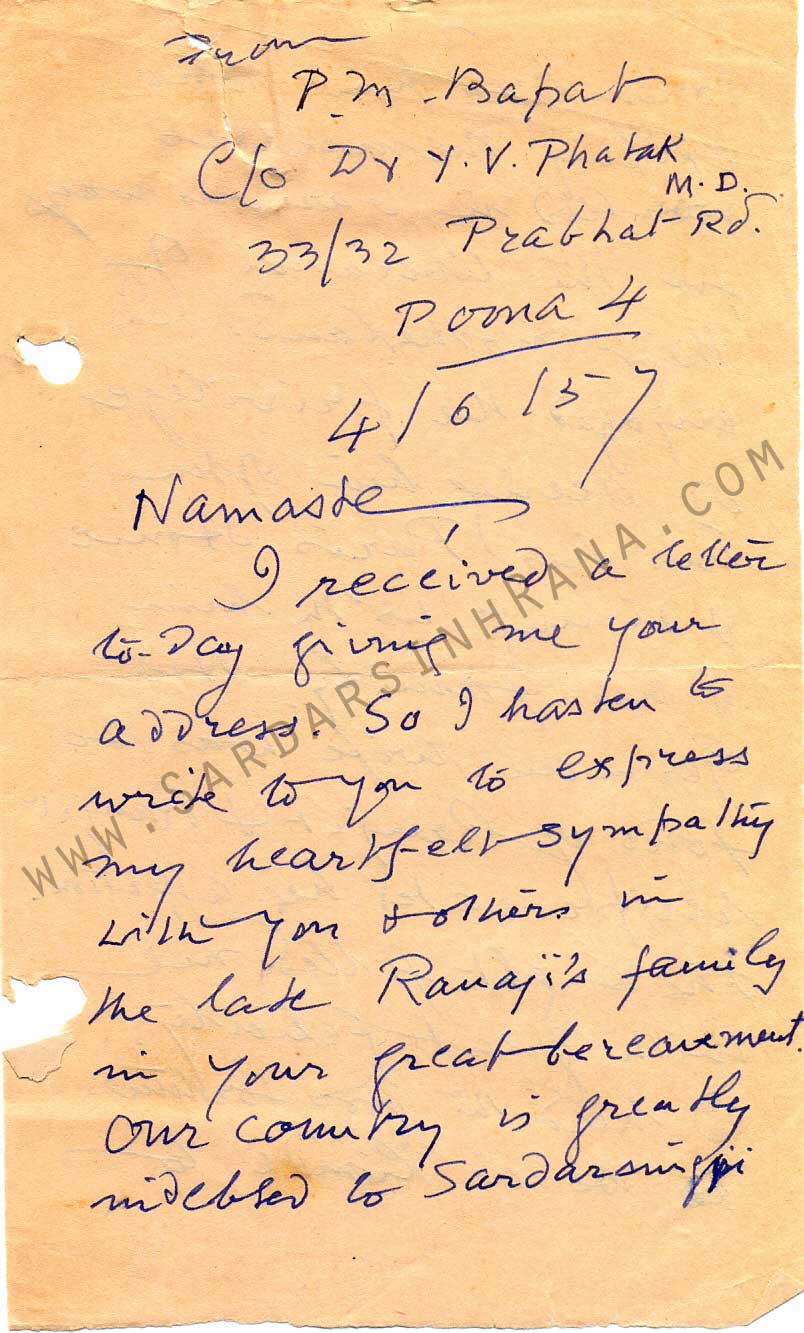 From
P. M. Bapat
C/o Dr Y. V. Phatak
M. D.
33/32 Prabhat Rd.
Poona 4
4/6/57
Namaste,
I received a letter
to-day giving me your
address. So I hasten to
write to you to express
my heartfelt sympathy
with you & others in
the late Ranaji's family
in your great bereavement.
Our country is greatly
indebted to Sardarsingji
WWW.SARDARSINHRANA.COM